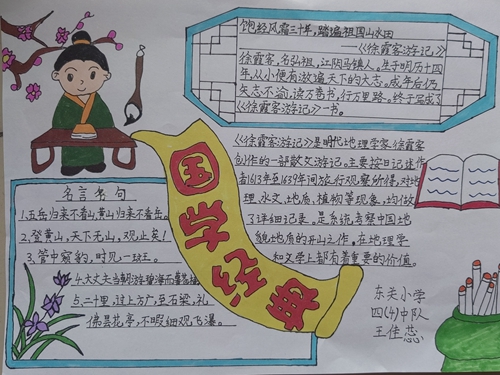 饱经风霜三十年,踏遍祖国山水田
——《徐霞客游记》
徐霞客,名弘祖,江阴马镇人,生于明万历十四
年,从小便有放遍天下的大志。成年后仍
矢志不渝,读万卷书,行万里路。终于写成了
《徐霞客游记》一书。
《徐霞客游记》是明代地理学家徐霞客
创作的一部散文游记。主要按日记述作
者1613年至1639年间旅行观察所得,对地
理、水文、地质、植物等现象,均做
了详细记录。是系统考察中国地
貌地质的开山之作。在地理学
和文学上都有着重要的价值。
国学经典
名言名句
1.五岳归来不看山,黄山归来不看岳。
2.登黄山,天下无山,观止矣!
3.管中窥豹,时见一斑。
4.大丈夫当朝游碧海而暮苍梧
5.二十里,过上方广,至石梁,礼
佛昙花亭,不暇细观飞瀑。
东关小学
四(4)中队
王佳蕊